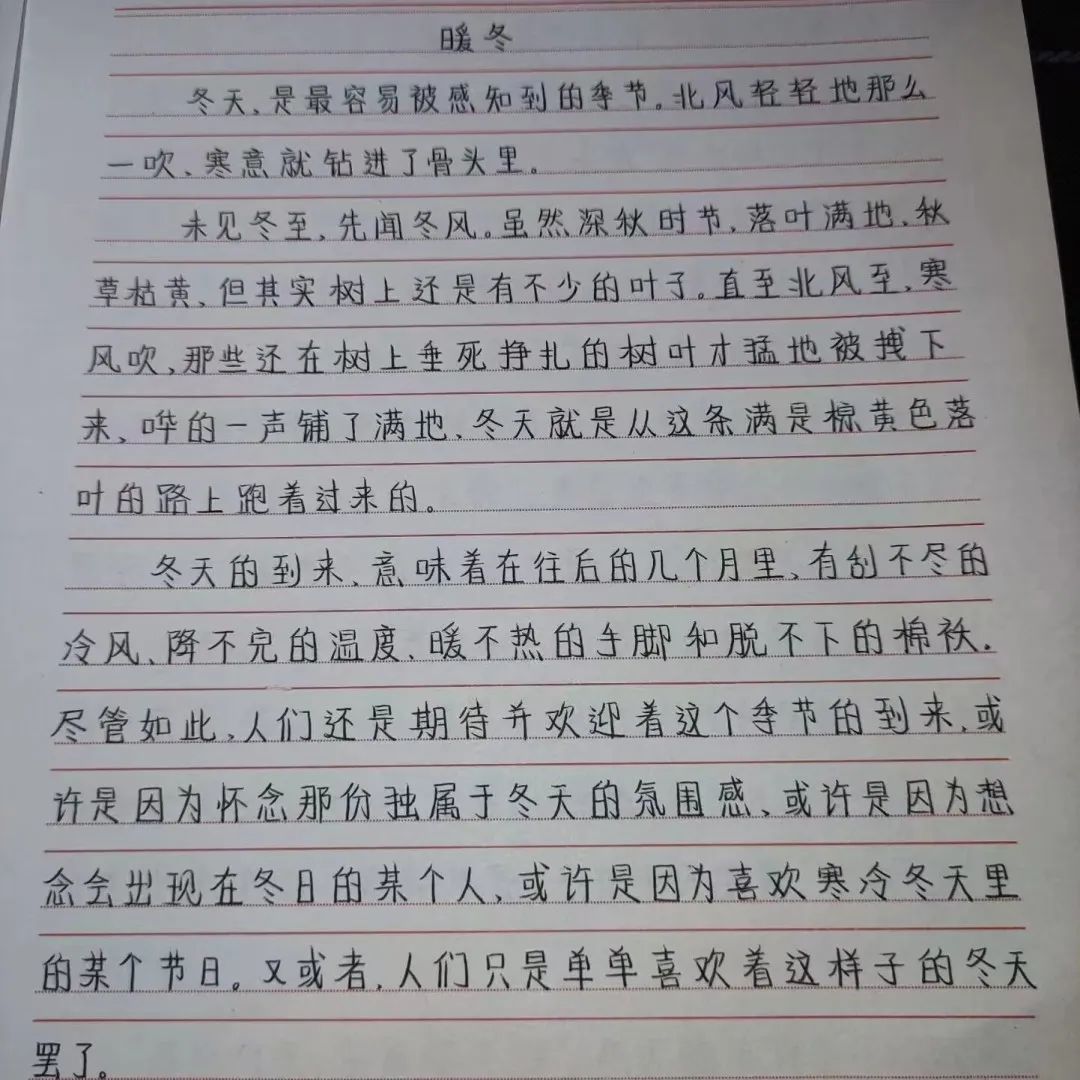 暖冬
冬天,是最容易被感知到的季节。北风轻轻地那么
一吹、寒意就钻进了骨头里。
未见冬至,先闻冬风。虽然深秋时节,落叶满地,秋
草枯黄、但其实树上还是有不少的叶子。直至北风至,寒
风吹,那些还在树上垂死挣扎的树叶才猛地被拽下
来、哗的一声铺了满地、冬天就是从这条满是棕黄色落
叶的路上跑着过来的。
冬天的到来、意味着在往后的几个月里、有刮不尽的
冷风、降不完的温度、暖不热的手脚和脱不下的棉袄.
尽管如此,人们还是期待并欢迎着这个季节的到来,或
许是因为怀念那份独属于冬天的氛围感、或许是因为想
念会出现在冬日的某个人,或许是因为喜欢寒冷冬天里
的某个节日。又或者,人们只是单单喜欢着这样子的冬天
罢了。